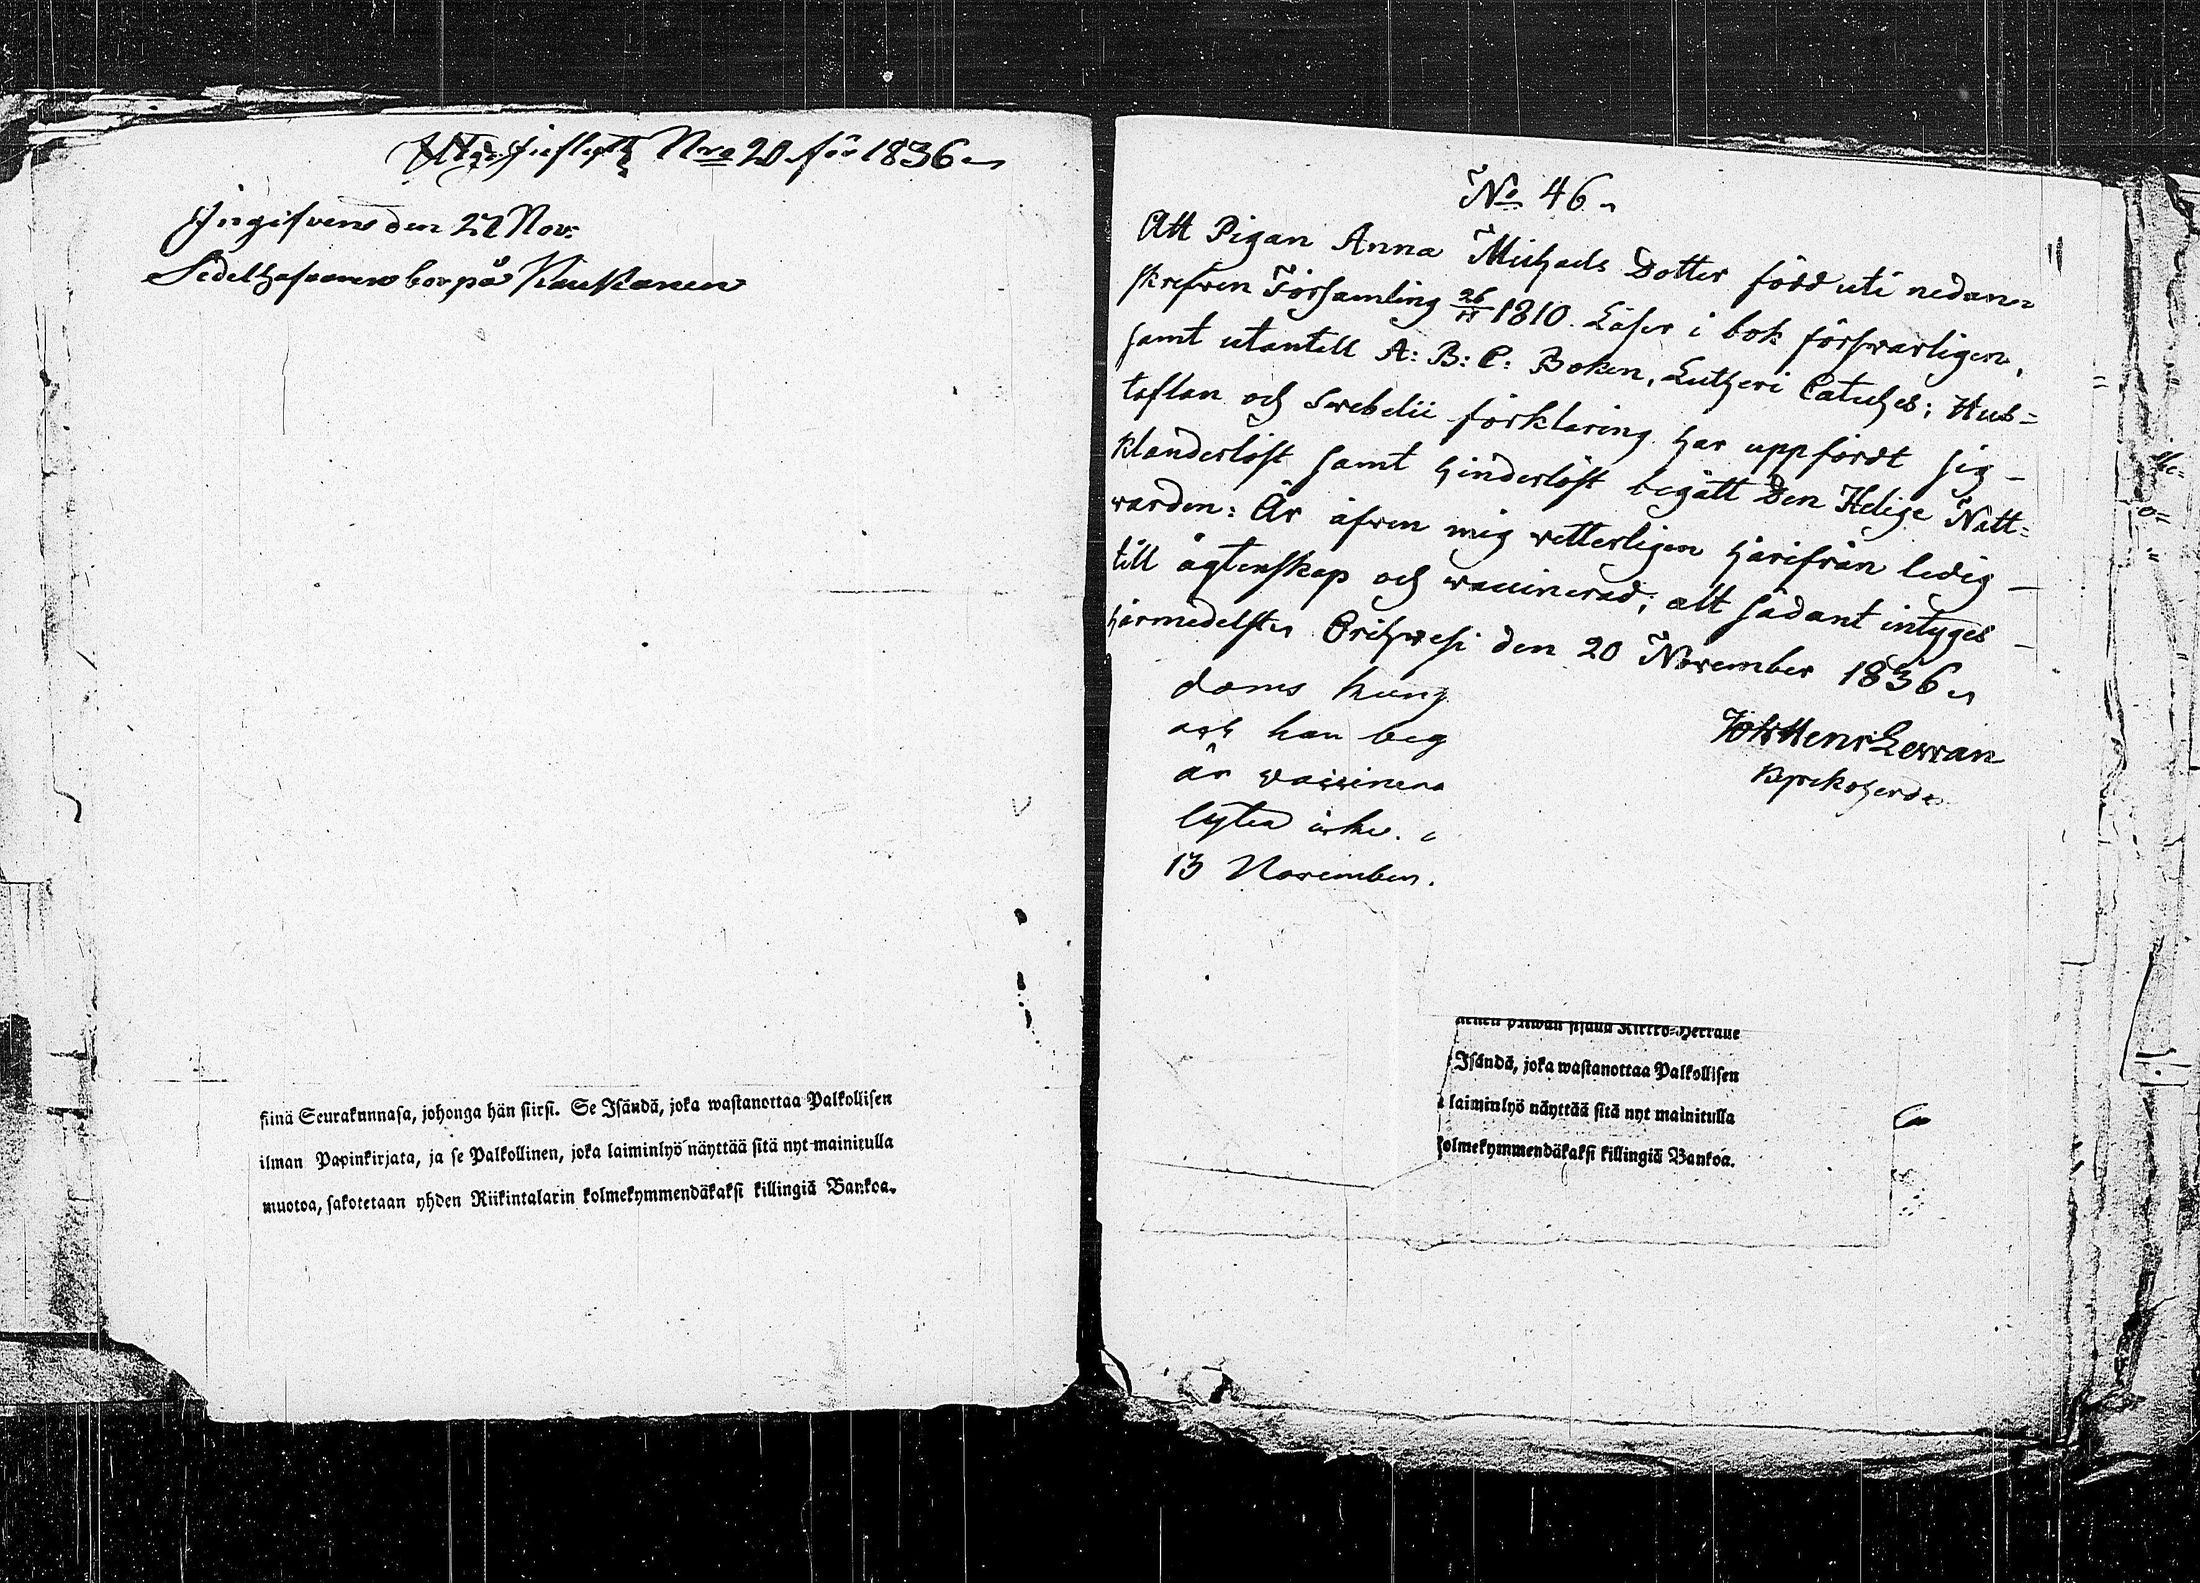 Inflytt Nro 20 för 1836
Ingifven den 27 Nov:
Sedelhafvaren bor på Kaukanen
siinä Seurakunnasa, johonga hän siirsi. Se Isändä, joka wastanottaa Palkollisen
ilman Papinkirjata, ja se Palkollinen, joka laiminlyö näyttää sitä nyt mainitulla
muotoa, sakotetaan yhden Riikintalarin kolmekymmendäkaksi killingiä Bankoa.
No 46
Att Pigan Anna Michaels Dotter född uti nedan=
skrefven Församling 26/11 1810. Läser i bok försvarligen,
samt utantill A: B: C: Boken, Lutheri Catuhes; Hus=
taflan och Swebelii förklaring har uppfördt sig –
klanderlöst samt hinderlöst begått Den Helige Natt=
varden: Är äfven mig vetterligen härifrån ledig –
till ägtenskap och vaccinerad; alt sådant intyges –
härmedelst Orihvesi den 20 November 1836
doms kung
och han beg
är vaccinera
lyten icke.
13 November.
Joh Henr Levan
Kyrkoherde
Isändä, joka wastanottaa Palkollisen
laiminlyö näyttää sitä nyt mainitulla
kolmekymmendäkaksi killingiä Bankoa.